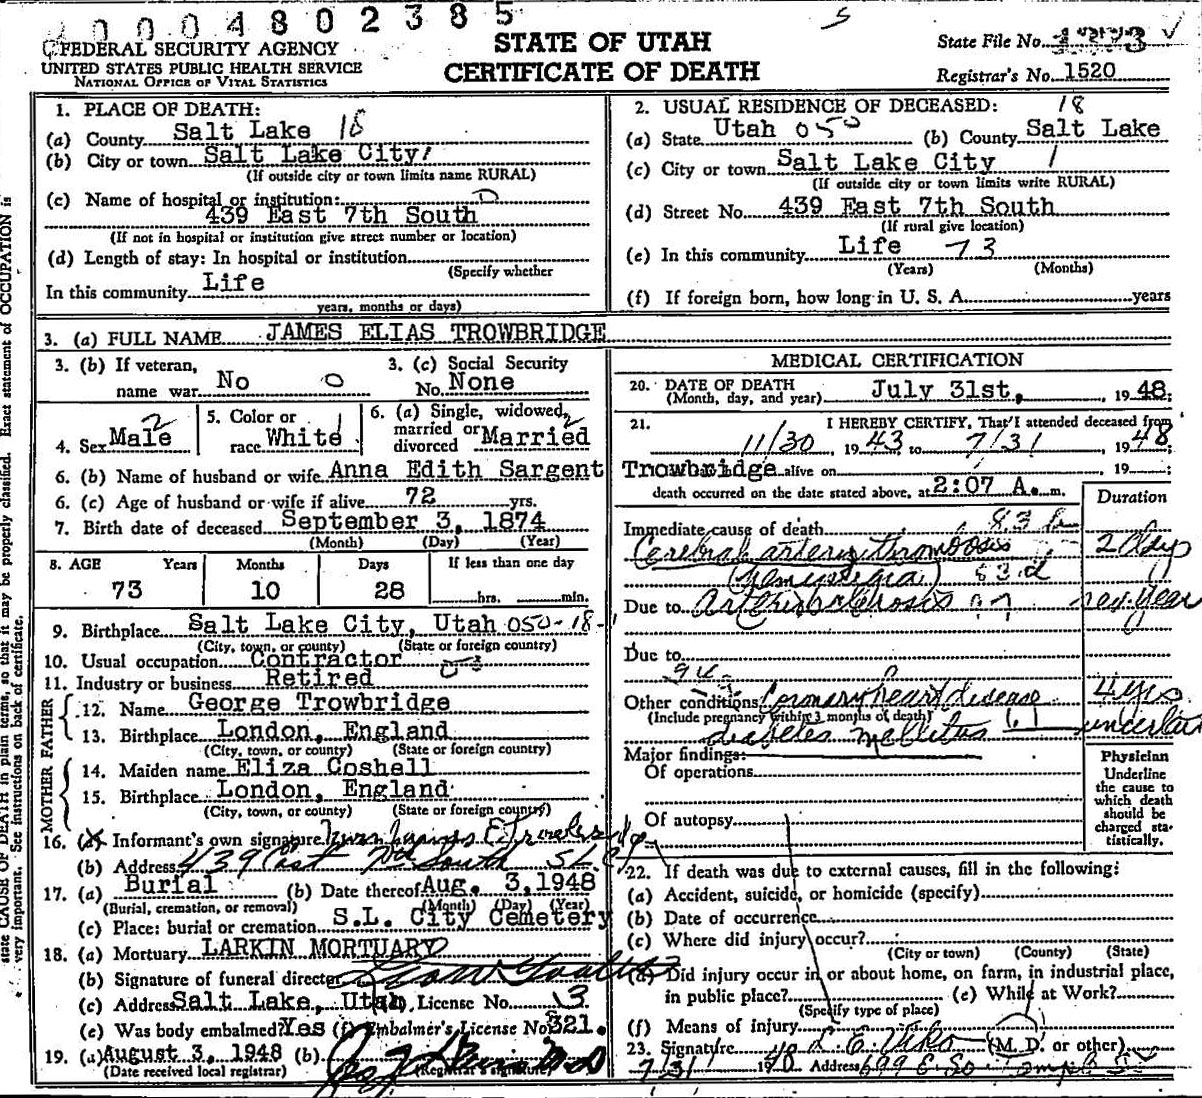 0000480 2 3 8 5
FEDERAL SECURITY AGENCY
UNITED STATES PUBLIC HEALTH SERVICE
NATIONAL OFFICE OF VITAL STATISTICS
STATE OF UTAH
CERTIFICATE OF DEATH
State File No.
Registrar's No. 1520
1. PLACE OF DEATH: 18
(a) County Salt Lake
(b) City or town Salt Lake City
(If outside city or town limits name RURAL)
(c) Name of hospital or institution:
439 East 7th South
(If not in hospital or institution give street number or location)
(d) Length of stay: In hospital or institution
(Specify whether
In this community Life
years, months or days)
2. USUAL RESIDENCE OF DECEASED: 18
(a) State Utah 050 (b) County Salt Lake
(c) City or town Salt Lake City 1
(If outside city or town limits write RURAL)
(d) Street No. 439 East 7th South
(If rural give location)
(e) In this community Life 73
(Years) (Months)
(f) If foreign born, how long in U. S. A. years
3. (a) FULL NAME JAMES ELIAS TROWBRIDGE
3. (b) If veteran,
name war No 0
3. (c) Social Security
No. None
4. Sex Male 2
5. Color or
race White 1
6. (a) Single, widowed, 2
married or
divorced Married
6. (b) Name of husband or wife Anna Edith Sargent
6. (c) Age of husband or wife if alive 72 yrs.
7. Birth date of deceased September 3, 1874
(Month) (Day) (Year)
8. AGE Years Months Days If less than one day
73 10 28 hrs. min.
9. Birthplace Salt Lake City, Utah 050-18-
(City, town, or county) (State or foreign country)
10. Usual occupation Contractor
11. Industry or business Retired
FATHER
12. Name George Trowbridge
13. Birthplace London, England
(City, town, or county) (State or foreign country)
MOTHER
14. Maiden name Eliza Coshell
15. Birthplace London, England
(City, town, or county) (State or foreign country)
16. (a) Informant's own signature Mrs James E Trowbridge
(b) Address 439 East 7th South S L City
17. (a) Burial (b) Date thereof Aug. 3, 1948
(Burial, cremation, or removal) (Month) (Day) (Year)
(c) Place: burial or cremation S.L. City Cemetery
18. (a) Mortuary LARKIN MORTUARY
(b) Signature of funeral director
(c) Address Salt Lake, Utah (d) License No. 3
(e) Was body embalmed? Yes (f) Embalmer's License No. 321.
19. (a) August 3, 1948 (b)
(Date received local registrar) (Registrar's signature)
MEDICAL CERTIFICATION
20. DATE OF DEATH
(Month, day, and year) July 31st, , 1948;
21. I HEREBY CERTIFY, That I attended deceased from
11/30, 1943 to 7/31, 1948
Trowbridge alive on 19 ;
death occurred on the date stated above, at 2:07 A. m.
Duration
Immediate cause of death
Cerebral artery thrombosis 2 days
(Hemiplegia) 83 d
Due to Arteriosclerosis
Due to
Other conditions Coronary heart disease 4 yrs
(Include pregnancy within 3 months of death)
diabetes mellitus uncertain
Major findings:
Of operations
Of autopsy
Physician
Underline
the cause to
which death
should be
charged sta-
tistically.
22. If death was due to external causes, fill in the following:
(a) Accident, suicide, or homicide (specify)
(b) Date of occurrence
(c) Where did injury occur?
(City or town) (County) (State)
(d) Did injury occur in or about home, on farm, in industrial place,
in public place? (e) While at Work?
(Specify type of place)
(f) Means of injury
23. Signature L. E. Viko (M. D. or other)
7/31 1948 Address 699 E. So. Temple St
state CAUSE OF DEATH in plain terms, so that it may be properly classified. Exact statement of OCCUPATION is
very important. See instructions on back of certificate.